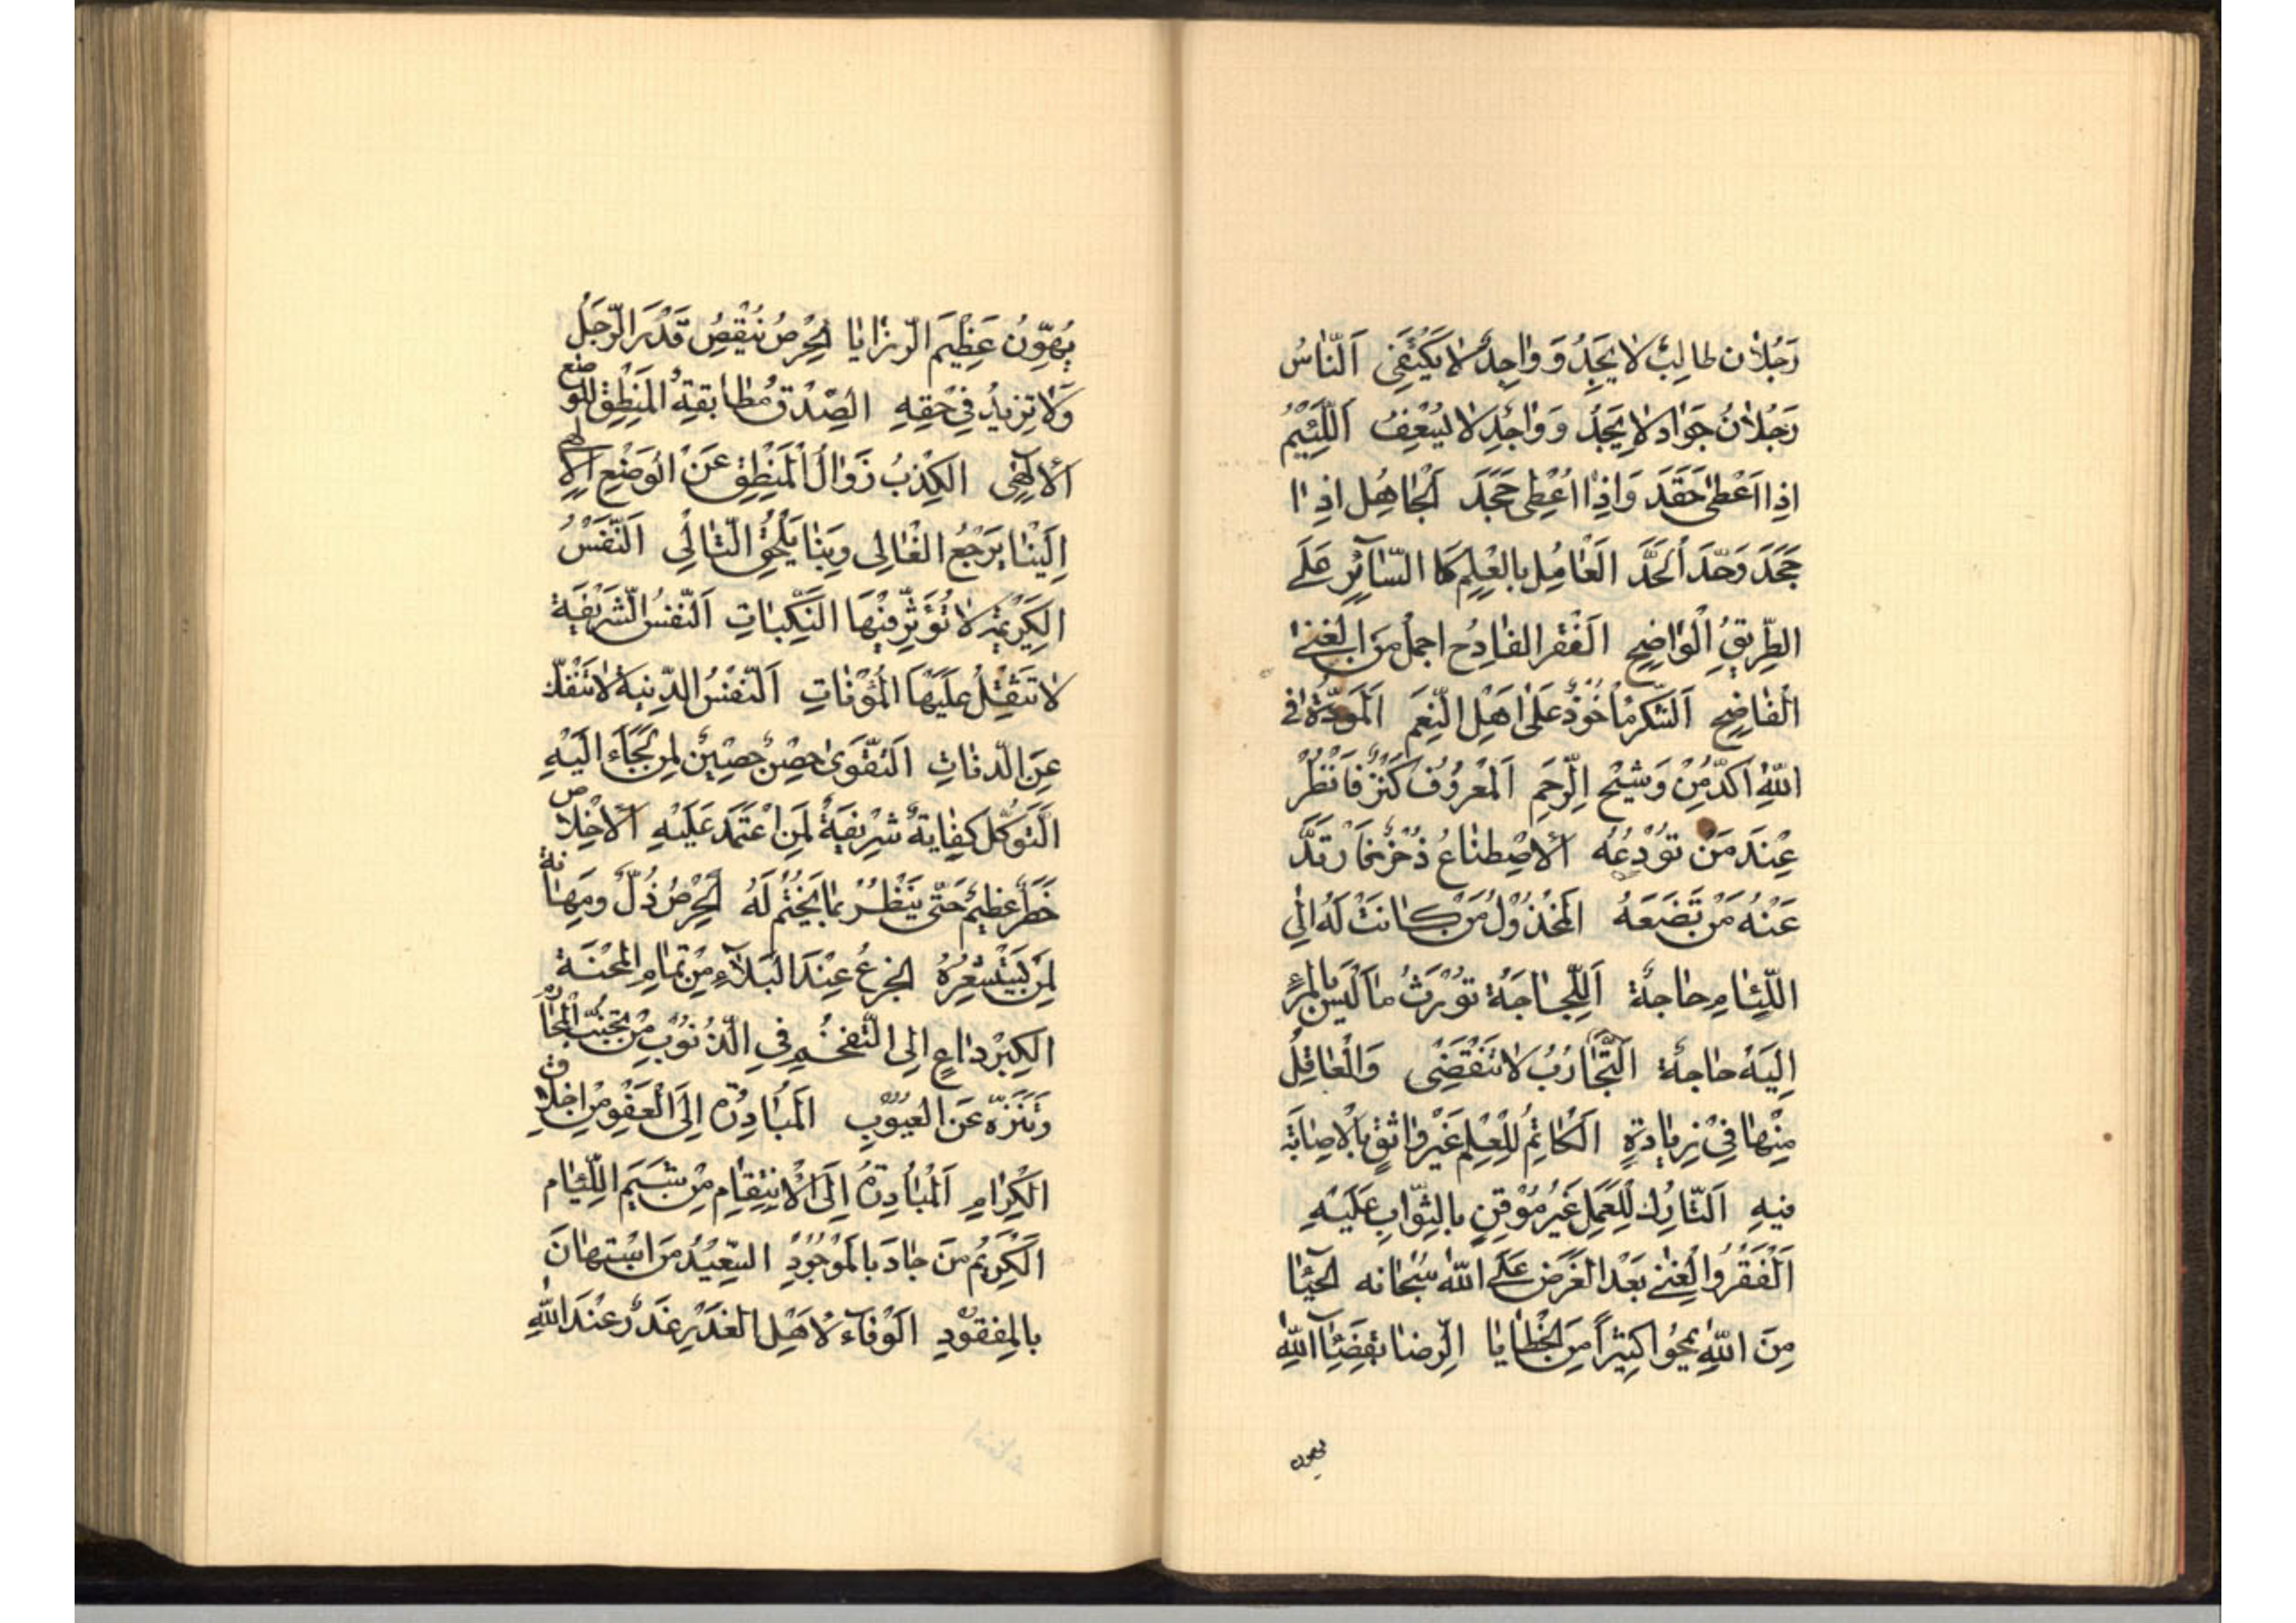 رَجُلانِ طالِبٌ لا يَجِدُ وَ وٰاجِدٌ لا يَكْتَفي اَلنّاسُ
رَجُلانُ جَوٰاد لا يَجِدُ وَ وٰاجِد لا يُسْعِفُ اَللَّئيمُ
اِذا اَعْطىٰ حَقَدَ وَاِذا اُعْطِىَ جَحَدَ اَلْجاهِل اِذا
جَحَدَ وَحّدَ اَلْحَدَ اَلعْامِل بِالعِلْمِ كَا السّائِرِ عَلَى
الطِّريقِ الْوٰاضِحِ اَلْفَقْر الفادِح اجمل مِنَ الغِنٰا
الْفٰاضِحِ اَلشّكر مأخُوذٌ عَلىٰ اَهْلِ النِّعَمِ اَلْمَودّة فى
اللهِ آكَدُ مِنْ وَشيْجِ الرّحِمِ اَلْمَعْرُوف كَنْزٌ فَانْظُرْ
عِنْدَ مَنْ تُوْدِعُهُ اَلْاِصْطِناعُ ذُخْرٌ فَارْتَدَّ
عَنْهُ مَنْ تَضَعَهُ الْمَخْذوْلُ مَنْ كانَتْ لَهُ اِلَى
اللِّئامِ حٰاجةٌ اَللَّجاجَة تُوْرِثُ ما لَيْسَ بِالْمَرْءِ
اِلَيْهِ حاجةٌ اَلتَّجٰارُبُ لا تَنْقَضِى وَالْعٰاقِلُ
مِنْهٰا فىْ زِيادَةٍ اَلْكاتِمُ لِلْعِلْمِ غَيْر وٰاثِقٍ بِالْاِصٰابَة
فيهِ اَلتّارِك لِلْعَمَلِ غَيْرُ مُوْقِنٍ بِالثّوٰابِ عَلَيْهِ
اَلْفَقْرُ وَالْغِنىٰ بَعْدَ الْعَرْضِ عَلَى اللهِ سُبْحٰانه اَلحَيٰآءُ
مِنَ اللهِ يَمْحُوا كَثيراً مِنَ الْخَطايا اَلرِّضا بِقَضٰآءِ اللهِ
يهون
يُهوِّنُ عَظيْمَ الرّزايا اَلْحِرْصُ يُنْقِصُ قَدْرَ الرّجُلِ
وَلا يَزيدُ فى رِزْقِهِ اَلصِّدْق مُطابقةُ الْمَنْطِقِ لِلْوَضْعِ
اَلْاِلٰهى اَلْكِذْبُ زَوٰالُ الْمَنْطِقِ عَنْ الْوَضْعِ الْاِلٰهى
اِلَيْنٰا يَرْجِعُ الْغٰالى وَبِنٰا يَلْحَقُ التّٰالى اَلنّفْسُ
الكَريْمَة لا تُؤَثّر فيْهَا النَّكَبٰاتِ اَلنّفسُ الشّريْفَة
لا تَثْقُلُ عَلَيْهَا الْمَؤُنٰاتِ اَلنّفْسُ الدّنِيّة لا تَنْفَكّ
عَنِ الدّنٰاتِ اَلتّقْوىٰ حِصْنٌ حَصيْنٌ لِمَنْ لَجَأ اِلَيْهِ
اَلتّوَكّل كِفٰاية شَريْفَةٌ لِمَنِ اعْتَمَدَ عَلَيْهِ اَلْاِخْلاص
خَطَرٌ عَظيمٌ حَتّىٰ يَنْظُرَ بِمٰا يُخْتَمُ لَهُ اَلْحِرْصُ ذُلٌّ ومَهٰانة
لِمَنْ يَسْتَشْعِرُهُ اَلْجزعُ عِنْدَ الْبَلآءِ مِنْ تمٰامِ الْمِحْنَة
اَلْكِبْرُ دٰاعٍ اِلى التّفخيمِ فِى الذُّنُوْبِ مَنْ تَجَنّبَ الْمَحٰارِم
وتَنَزّهَ عَنِ الْعُيُوْبِ اَلْمُبٰادِرَة اِلَى الْعَفْوِ مِنْ اَخْلاقِ
الْكِرٰامِ اَلْمُبٰادِرَةُ اِلَى الْاِنْتِقٰامِ مِنْ شِيَمِ اللِّئٰامِ
اَلْكَريْمُ مَنَ جٰادَ بِالْمَوْجُوْدِ السّعيْدُ مَنِ اسْتَهٰانَ
بِالْمَفْقُوْدِ اَلْوَفٰآءُ لِاَهْلِ الْغَدْرِ غَدْرٌ عِنْدَ اللهِ